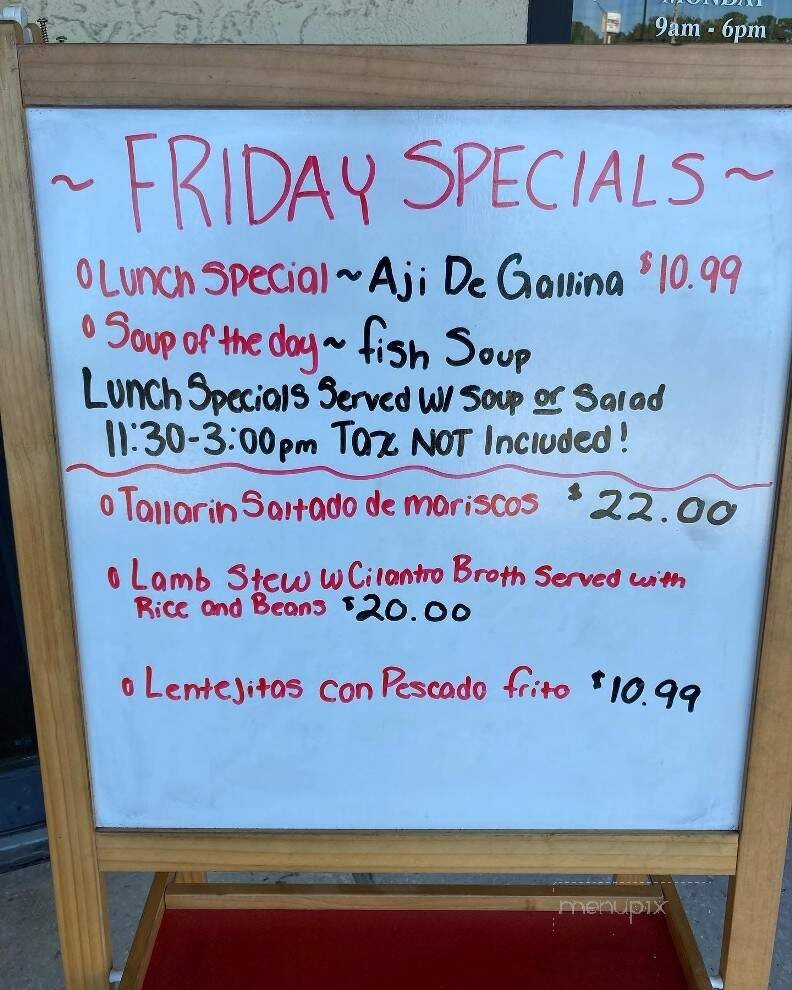 MONDAY
9am - 6pm
~ FRIDAY SPECIALS ~
o Lunch Special ~ Aji De Gallina $10.99
o Soup of the day ~ fish Soup
Lunch Specials Served W/ Soup or Salad
11:30-3:00pm Tax NOT Included!
o Tallarin Saltado de mariscos $22.00
o Lamb Stew w Cilantro Broth Served with
Rice and Beans $20.00
o Lentejitas con Pescado frito $10.99
menupix